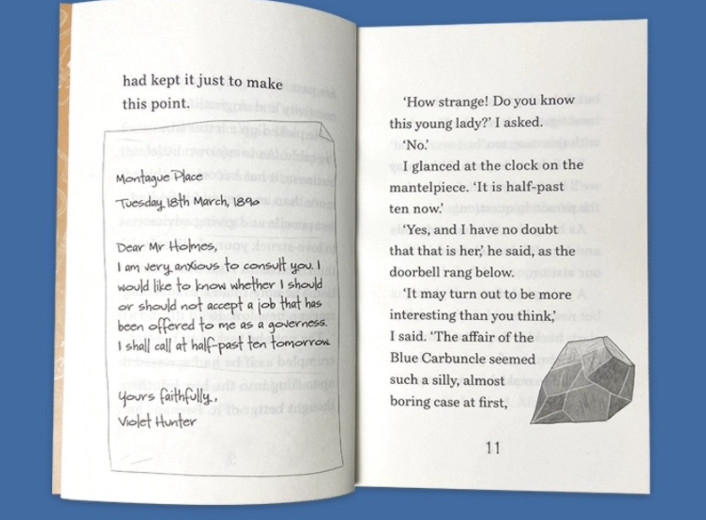 had kept it just to make
this point.
Montague Place
Tuesday, 18th March, 1890
Dear Mr Holmes,
I am very anxious to consult you. I
would like to know whether I should
or should not accept a job that has
been offered to me as a governess.
I shall call at half-past ten tomorrow.
Yours faithfully,
Violet Hunter
‘How strange! Do you know
this young lady?’ I asked.
‘No.’
I glanced at the clock on the
mantelpiece. ‘It is half-past
ten now.’
‘Yes, and I have no doubt
that that is her,’ he said, as the
doorbell rang below.
‘It may turn out to be more
interesting than you think,’
I said. ‘The affair of the
Blue Carbuncle seemed
such a silly, almost
boring case at first,
11